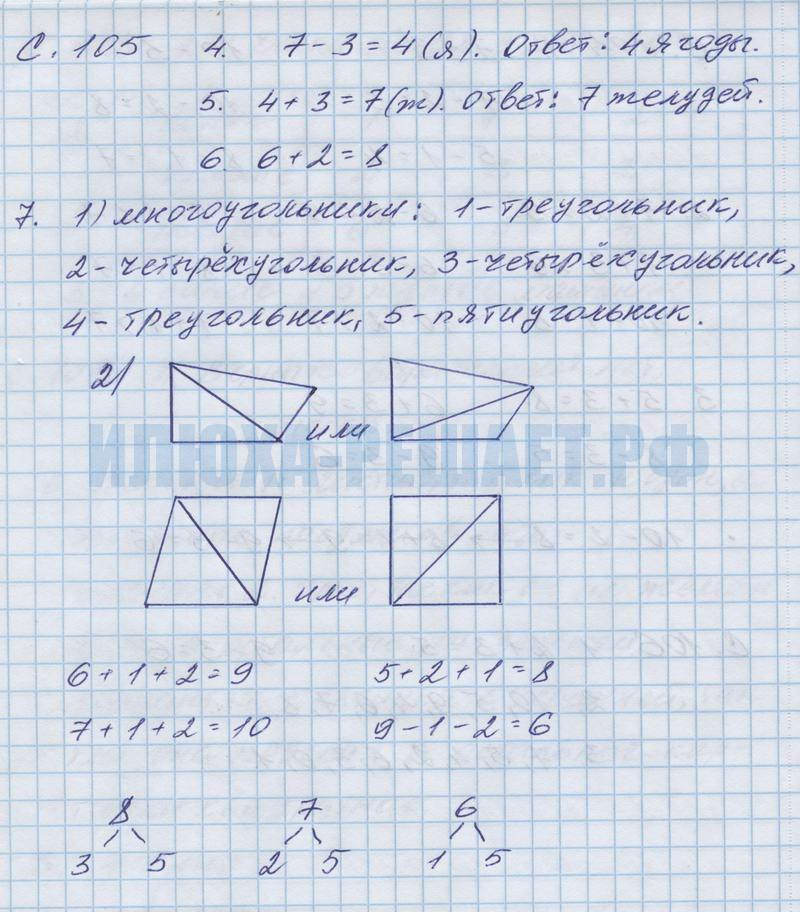 С. 105 4. 7 - 3 = 4 (я). Ответ: 4 ягоды.
5. 4 + 3 = 7 (ж). Ответ: 7 желудей.
6. 6 + 2 = 8
7. 1) многоугольники: 1 - треугольник,
2 - четырёхугольник, 3 - четырёхугольник,
4 - треугольник, 5 - пятиугольник.
2) или
ИЛЮХА-РЕШАЕТ.РФ
или
6 + 1 + 2 = 9 5 + 2 + 1 = 8
7 + 1 + 2 = 10 9 - 1 - 2 = 6
8 7 6
3 5 2 5 1 5